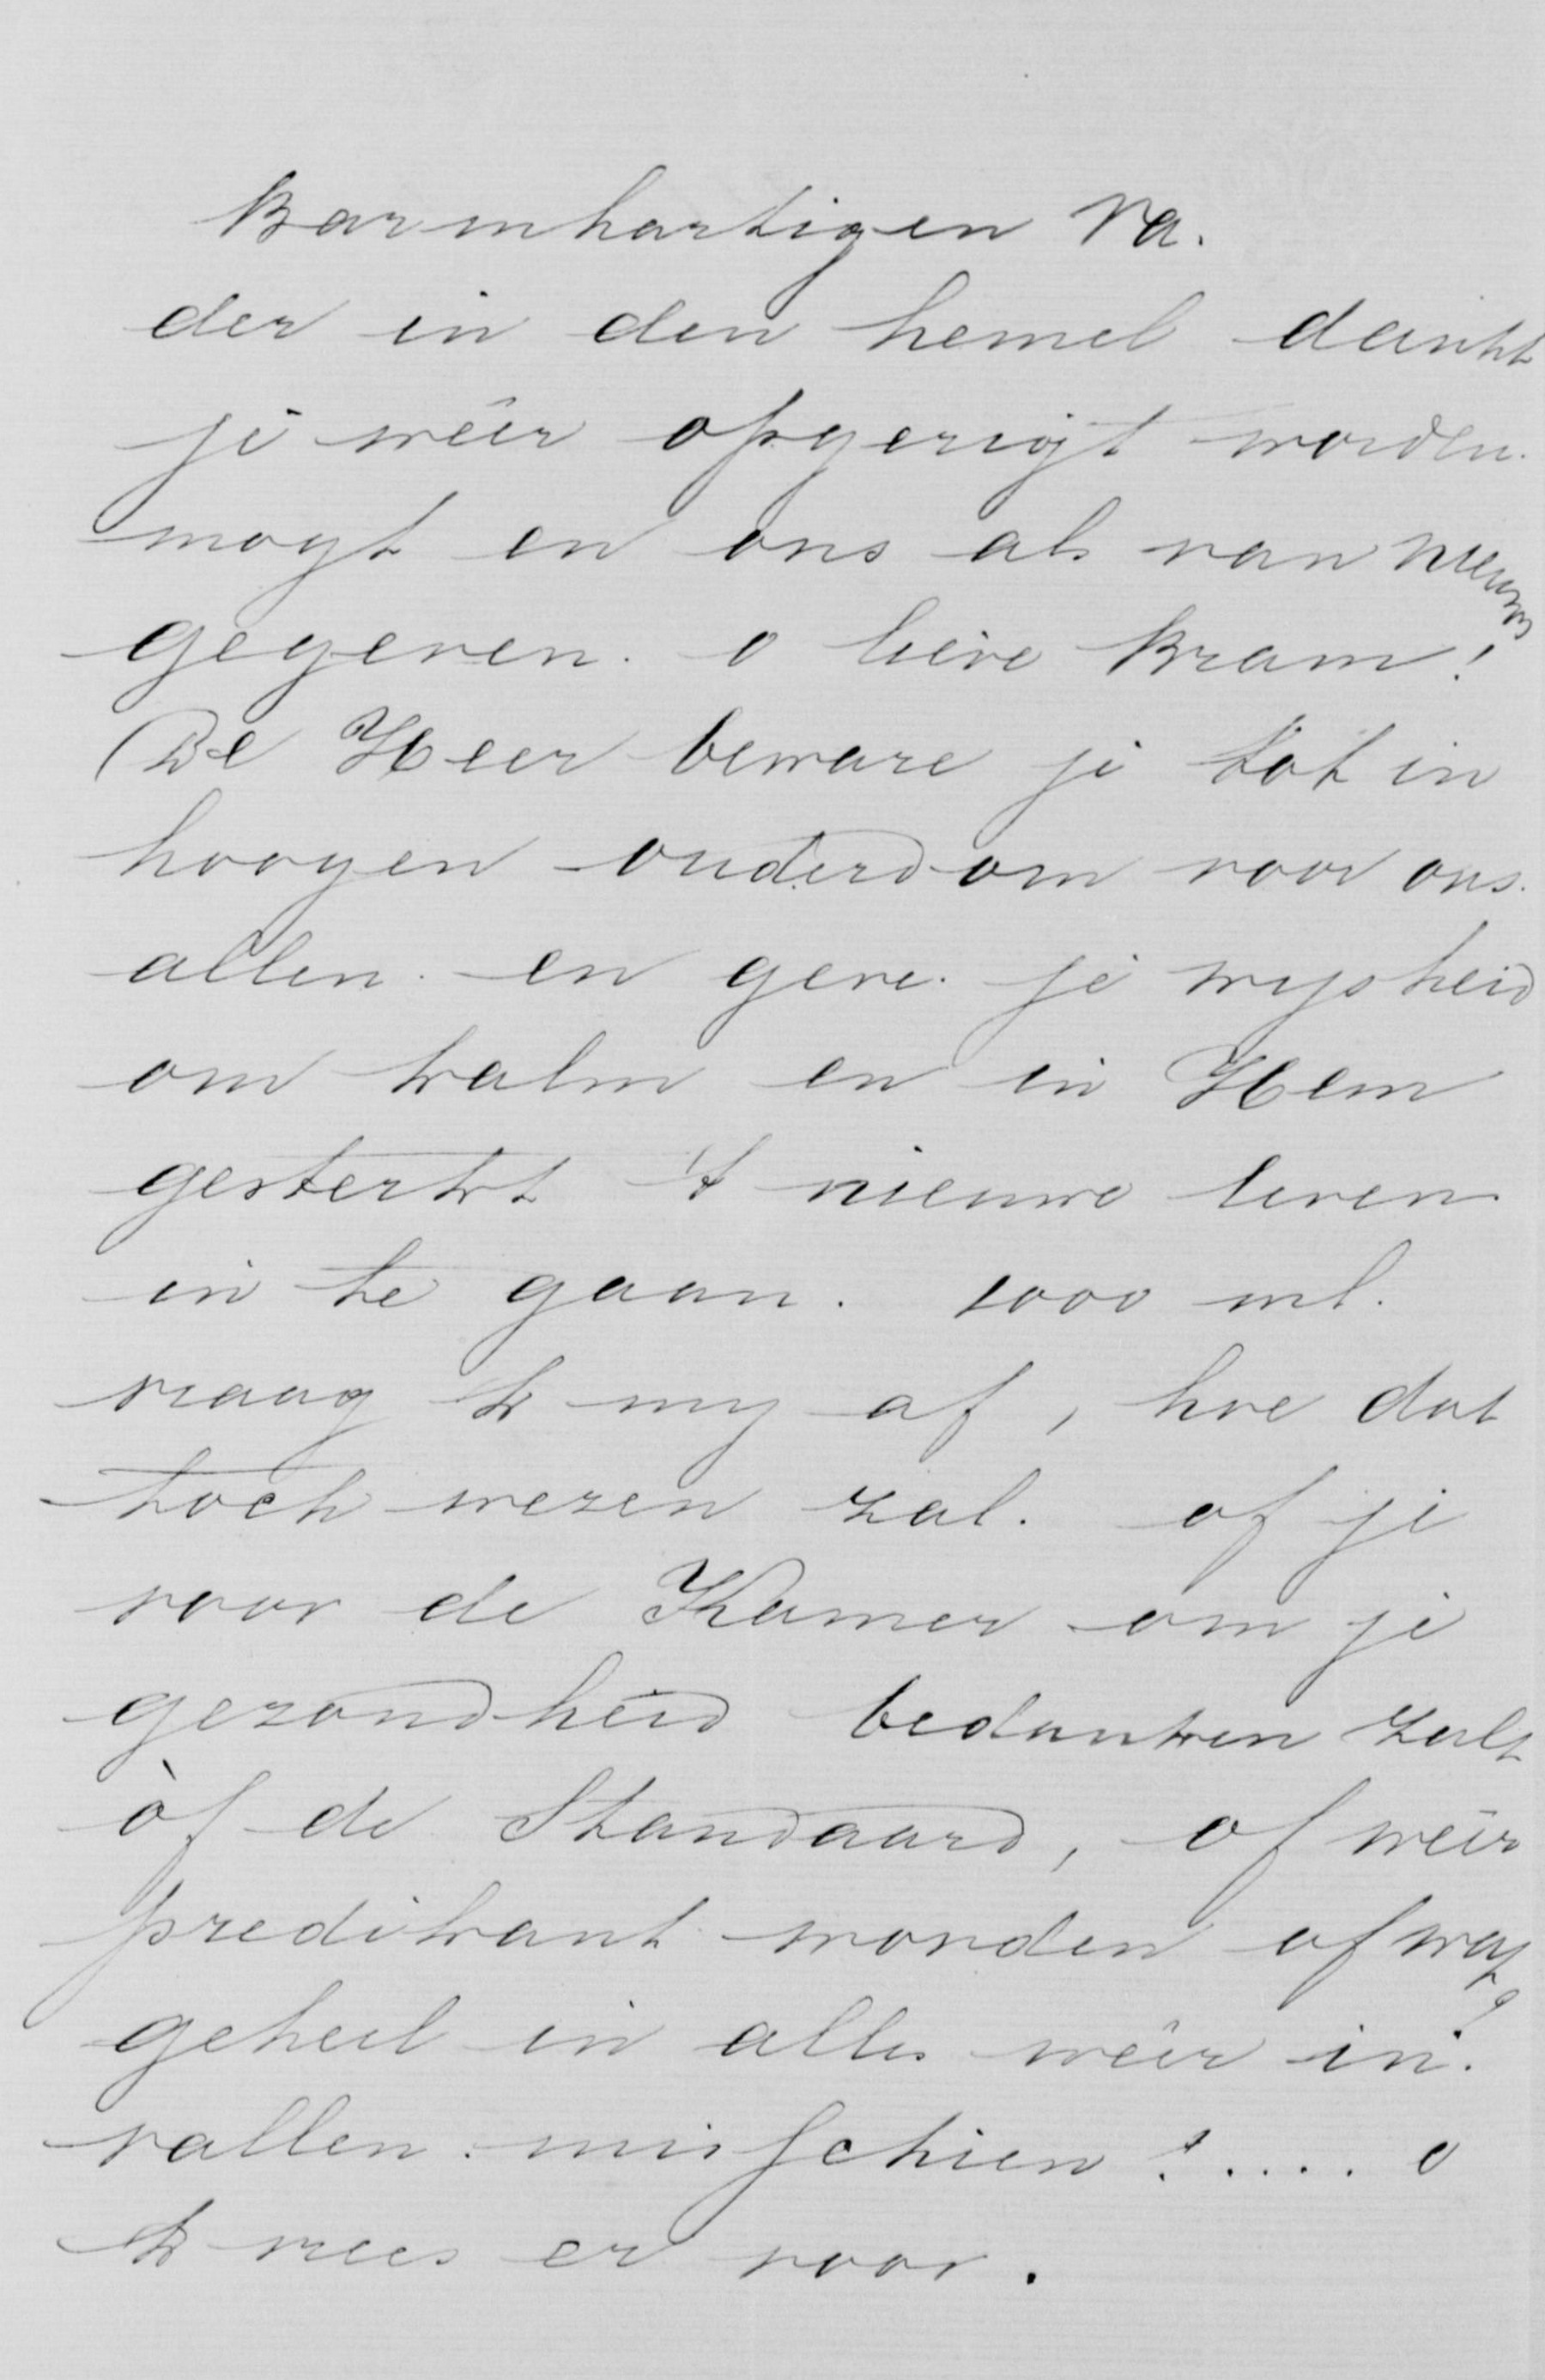 Barmhartigen Va.
der in den hemel dankt
je wêer opgerigt worden.
mogt en ons als van nieuws
gegeven. o lieve Bram!
De Heer beware je tot in
hoogen ouderdom voor ons.
allen. en geve. je wysheid
om kalm en in Hem
gesterkt 't nieuwe leven
in te gaan. 1000 ml.
vraag ik my af, hoe dat
toch wezen zal. of je
voor de Kamer om je
gezondheid bedanken zult
òf de Standaard, of wêer
predikant worden of wat?
geheel in alles wêer in.
vallen. misschien!.... o
ik vrees er voor.